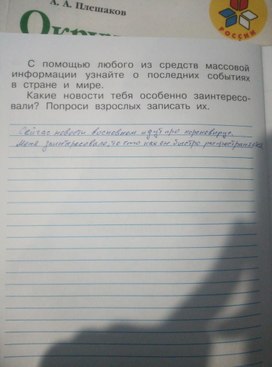 А. А. Плешаков
Окру
РОССИИ
С помощью любого из средств массовой
информации узнайте о последних событиях
в стране и мире.
Какие новости тебя особенно заинтересо-
вали? Попроси взрослых записать их.
Сейчас новости восновном идут про короновирус.
Меня заинтересовало, то что как он быстро